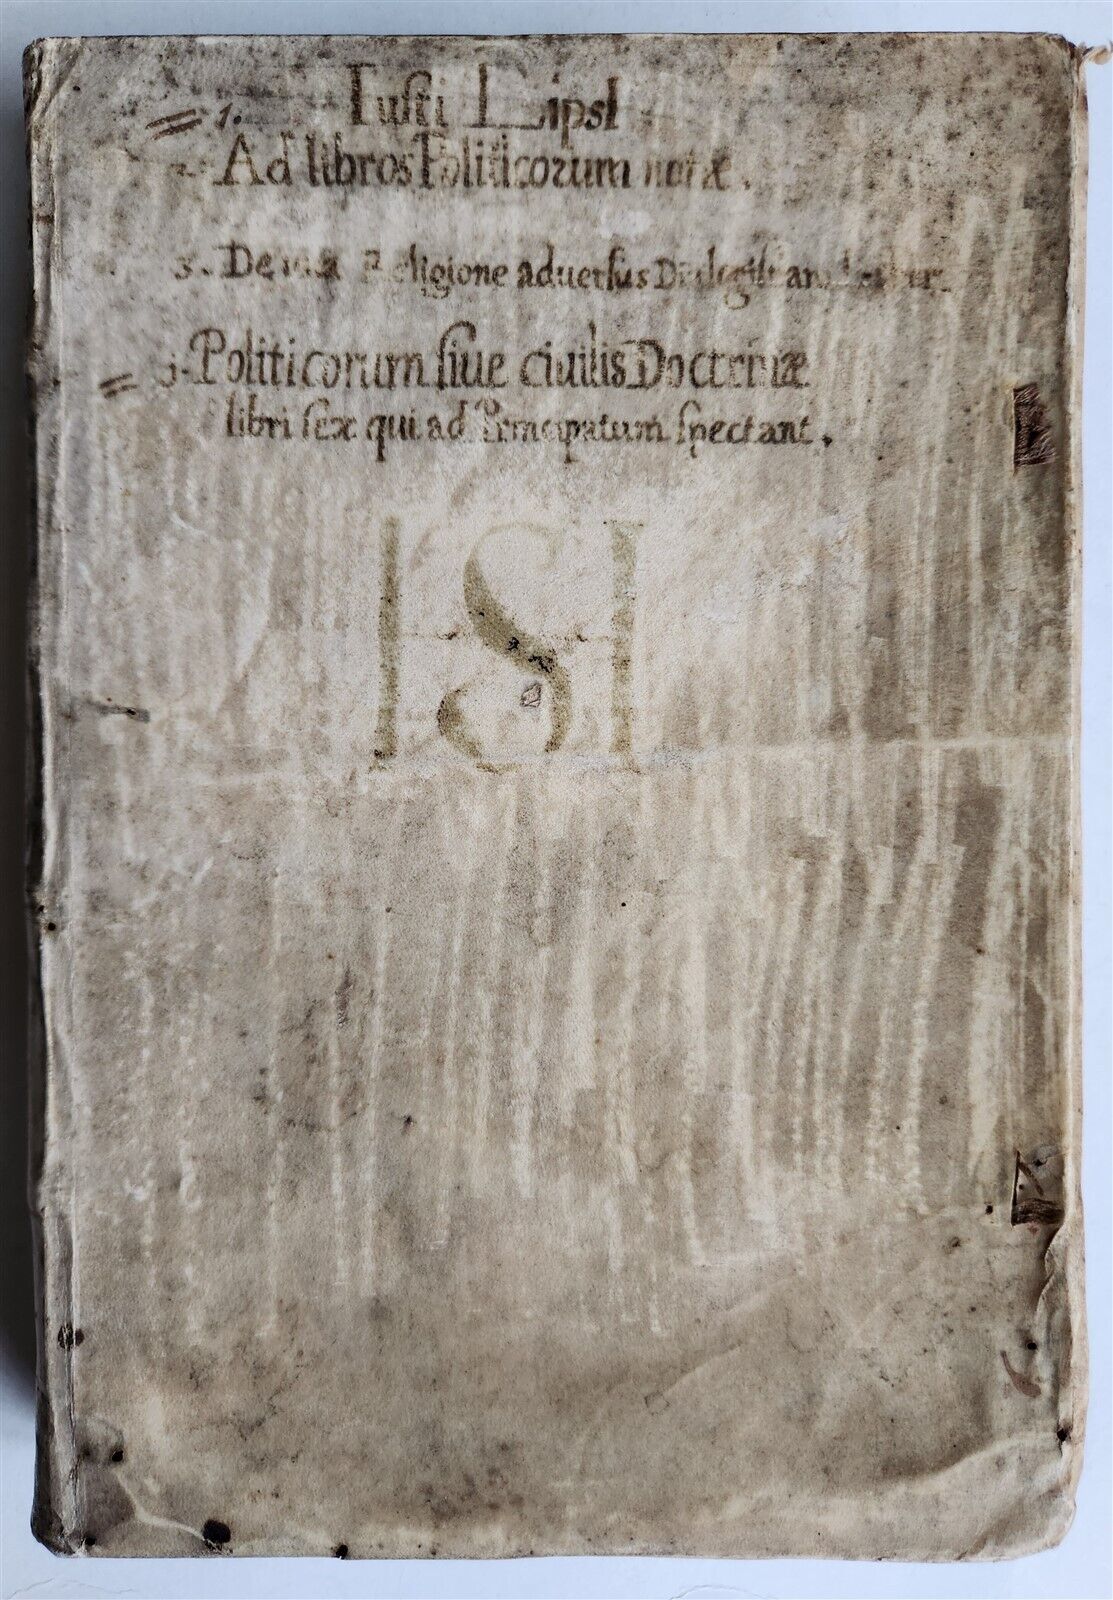 1. Iusti Lipsi
2. Ad libros Politicorum notæ.
3. De una Religione aduersus Dialogistam
Politicorum siue ciuilis Doctrinæ
libri sex qui ad Principatum spectant.
ISI